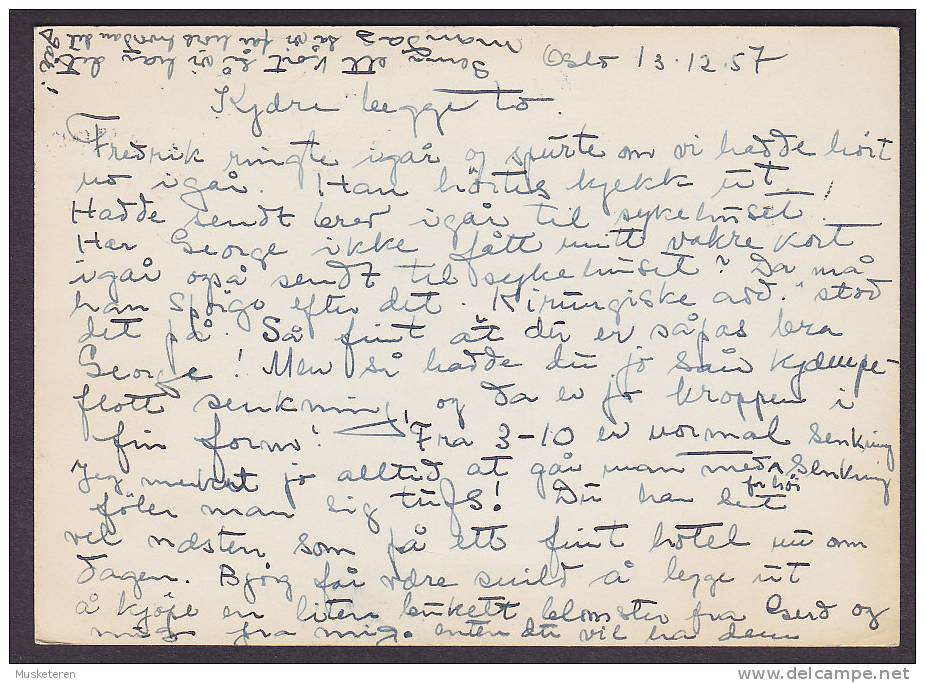 Oslo 13.12.57
Send ett kort så vi har det
mandag så vi får høre hvordan det
går!
Kjære begge to.
Fredrik ringte igår og spurte om vi hadde hört
no igår. Han hörtes kjekk ut.
Hadde sendt brev igår til sykehuset!
Har George ikke fått mitt vakre kort
igår også sendt til sykehuset? Da må
han spörge efter det. "Kirurgiske add." stod
det på. Så fint at du er såpas bra
George! Men så hadde du jo sån kjæmpe-
flott senkning, og da er jo kroppen i
fin form! Fra 3-10 er normal senkning
Jeg merket jo alltid at går man med for höi senkning
föler man sig tufs! Du har det
vel næsten som på ett fint hotel nu om
dagen. Bjørg får være snild å legge ut
å kjöpe en liten bukett blomster fra Gerd og
mig fra mig. enten du vil ha dem
Musketeren
delcampe.net